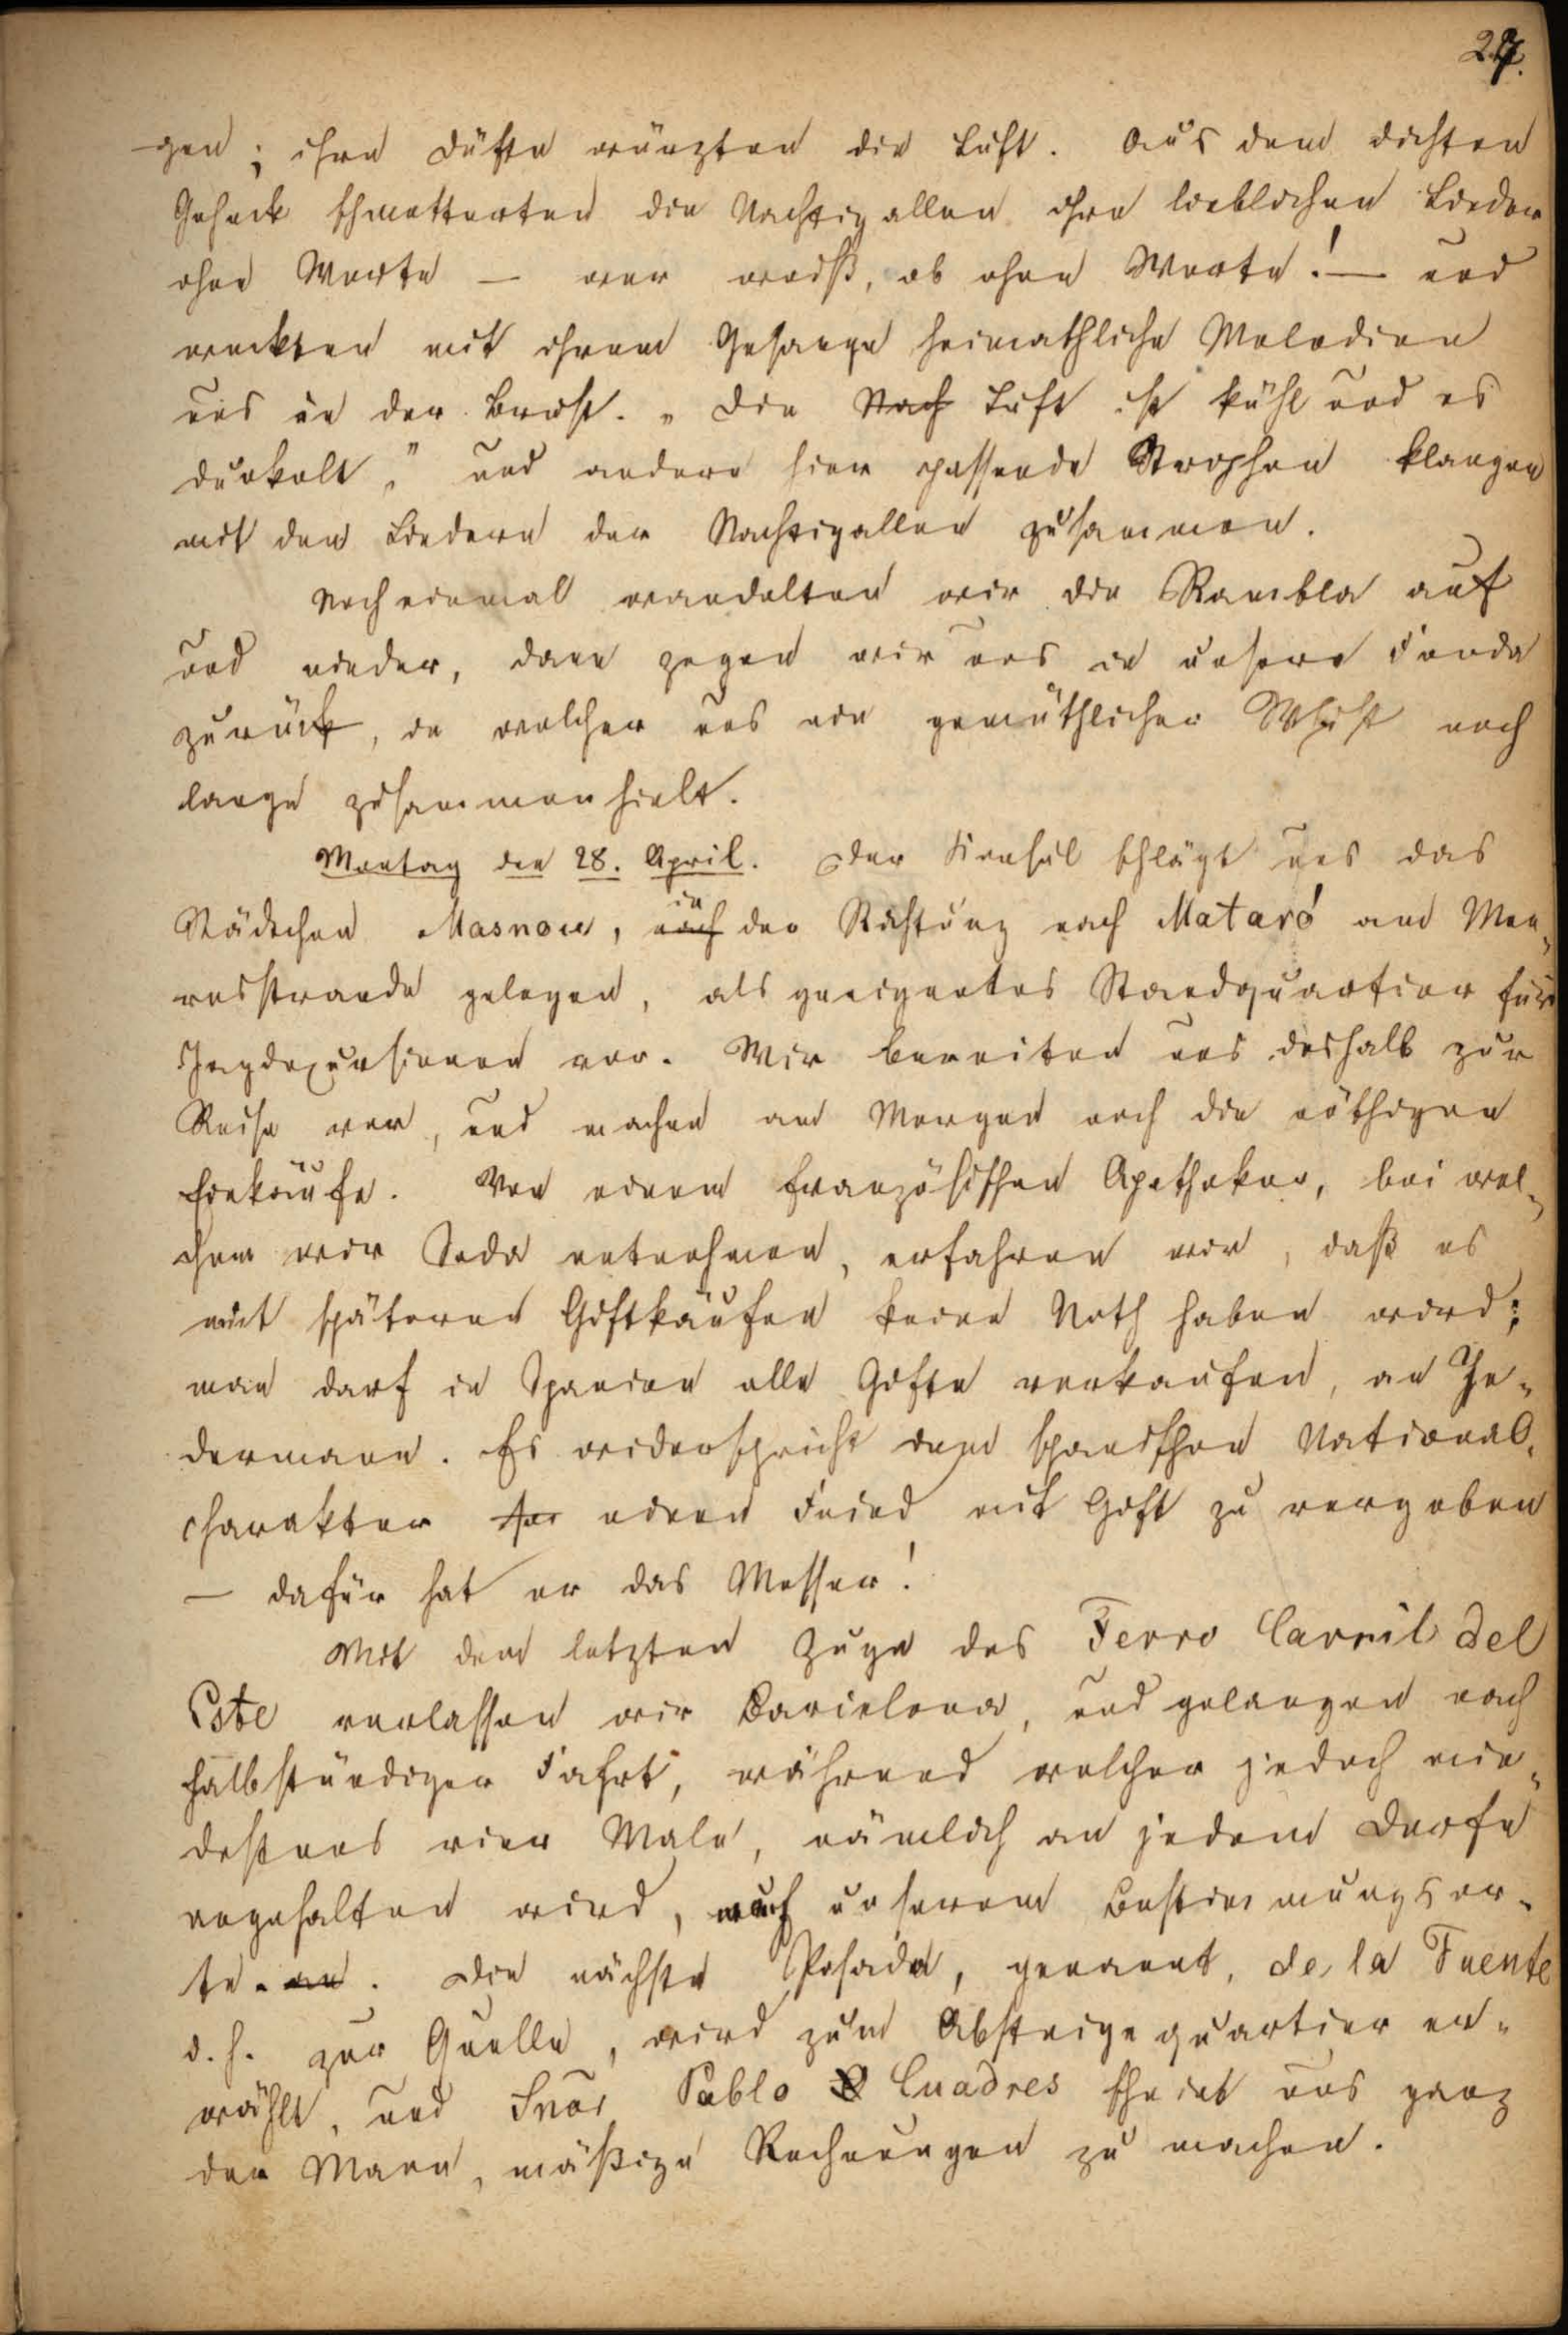 27.
gen; ihre Düfte würzten die Luft. Aus dem dichten
Geheck schmetterten die Nachtigallen ihre lieblichen Lieder
ohne Worte — wer weiß, ob ohne Worte! — und
weckten mit ihrem Gesange heimathliche Melodien
uns in der Brust. „Die Nach Luft ist kühl und es
dunkelt," und andere hier passende Strophen klangen
mit den Liedern der Nachtigallen zusammen.
Noch einmal wandelten wir die Rambla auf
und nieder, dann zogen wir uns in unsere Fonda
zurück, in welcher uns ein gemüthlicher Whist noch
lange zusammenhielt.
Montag den 28. April. Der Konsul schlägt uns das
in
Städtchen Masnou, nach der Richtung nach Mataró am Mee-
resstrande gelegen, als geeignetes Standquartier für
Jagdexcursionen vor. Wir bereiten uns deshalb zur
Reise vor, und machen am Morgen noch die nöthigen
Einkäufe. Von einem französischen Apotheker, bei wel-
chem wir Soda entnehmen, erfahren wir, daß es
mit späteren Giftkäufen keine Noth haben wird;
man darf in Spanien alle Gifte verkaufen, an Je-
dermann. Es widerspricht dem spanischen National-
charakter einen Feind mit Gift zu vergeben
— dafür hat er das Messer!
Mit dem letzten Zuge des Ferro Carril del
Este verlassen wir Barcelona, und gelangen nach
halbstündiger Fahrt, während welcher jedoch min-
destens vier Male, nämlich an jedem Dorfe
angehalten wird, nach unserem Bestimmungsor-
te an. Die nächste Posada, genannt, de la Fuente
d. h. zur Quelle, wird zum Absteigequartier er-
wählt, und Snor Pablo Cuadres scheint uns ganz
der Mann, mäßige Rechnungen zu machen.